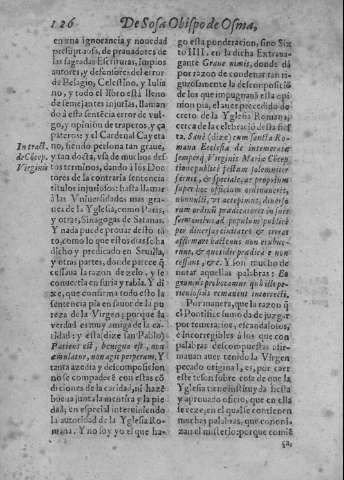 126 De Sosa Obispo de Osma,
en una ignorancia y nouedad
presuptuosa, de prauadores de
las sagradas Escrituras, impios
autores, y defensores del error
de Pelagio, Celestino, y Iulia
no, y todo el libro està lleno
de semejantes injurias, llaman
do à esta sentencia error de vul-
go, y opinion de traperos, y ça
pateros: y el Cardenal Cayeta
no, siendo persona tan graue,
y tan docta, vsa de muchos des
tos terminos, dando à los Doc
tores de la contraria sentencia
titulos injuriosos: hasta llamar
à las Vniuersidades mas gra-
ues de la Yglesia, como Paris,
y otras, Sinagogas de Satanas.
Y nada puede prouar desto to
to, como lo que estos dias se ha
dicho y predicado en Seuilla,
y otras partes, donde parece q̃
cessaua la razon de zelo, y se
conuertia en furia y rabia. Y di
xe, que confirma todo esto la
sentencia pia en fauor de la pu
reza de la Virgen; porque la
verdad es muy amiga de la ca-
ridad: y esta (dize san Pablo)
Patiens est, benigna est, non
æmulatur, non agit perperam. Y
tanta azedia y descomposicion
no se compadece con estas cõ
diciones de la caridad, ni haze
buena junta la mentira y la pie
dad; en especial interuiniendo
la autoridad de la Yglesia Ro-
mana. Y no soy yo el que ha-
In tract.
de Cõcep.
Virginis
go esta ponderacion, sino Six
to IIII. en la dicha Extraua-
gante Graue nimis, donde dà
por razon de condenar tan ri-
gurosamente la descomposicio
de los que impugnauã esta opi
nion pia, el auer precedido de-
creto de la Yglesia Romana,
cerca de la celebraciõ desta fies
ta. Sanè (dize) cum sancta Ro-
mana Ecclesia de intemeratæ
semperq́; Virginis Mariæ Cõcep-
tione publicè festum solemniter
celebret, & speciale, ac proprium
super hoc officium ordinauerit,
nonnulli, vt accepimus, diuerso-
rum ordinũ prædicatores in suis
sermonibus ad populum publicè
per diuersas ciuitates & terras
affirmare hactenus non erubue-
runt, & quotidie prædicare non
cessant, &c. Y son mucho de
notar aquellas palabras:
Por manera, que la razon q̃
el Pontifice sumo da de juzgar
por temerarios, escandalosos,
è incorregibles à los que con
palabras descompuestas afir-
mauan auer tenido la Virgen
pecado original, es, por caer
este teson sobre cosa de que la
Yglesia tiene instituyda fiesta
y aprouado oficio, que en ella
se reze; en el qual se contienen
muchas palabras, que canoni-
zan el misterio: porque comiẽ
ça,